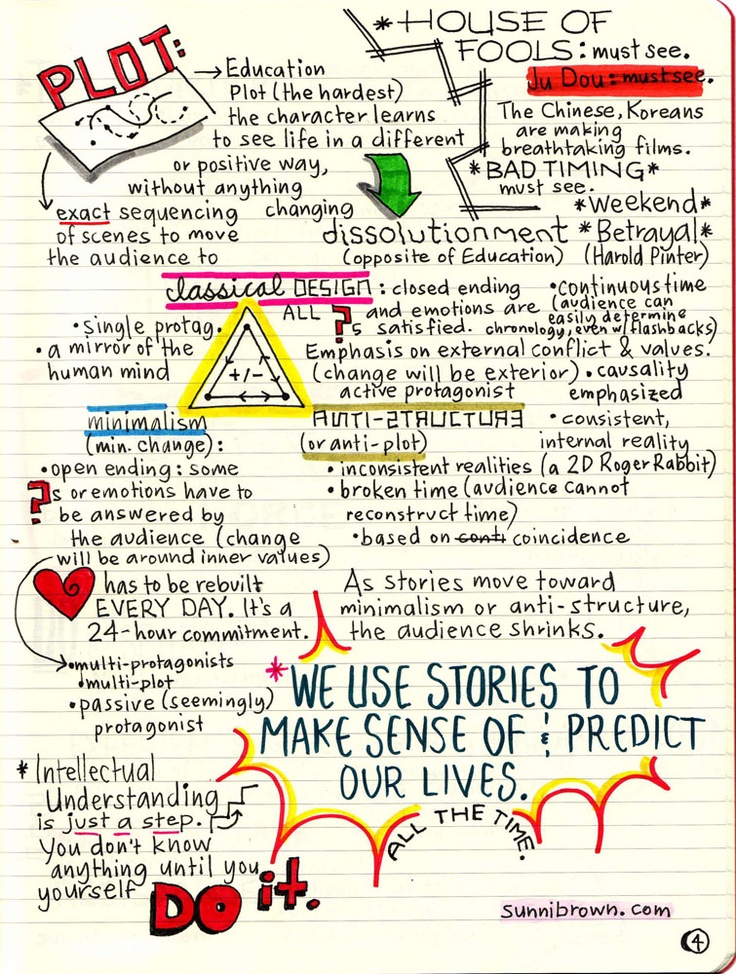 PLOT:
→ Education
Plot (the hardest)
the character learns
to see life in a different
or positive way,
without anything
changing
exact sequencing
of scenes to move
the audience to
* HOUSE OF
FOOLS: must see.
Ju Dou: must see.
The Chinese, Koreans
are making
breathtaking films.
*BAD TIMING*
must see.
*Weekend*
dissolutionment
(opposite of Education)
*Betrayal*
(Harold Pinter)
classical DESIGN: closed ending
ALL ?s and emotions are
satisfied.
• continuous time
(audience can
easily determine
chronology, even w/flashbacks)
• single protag.
• a mirror of the
human mind
+/-
Emphasis on external conflict & values.
(change will be exterior)
active protagonist
• causality
emphasized
• consistent,
internal reality
minimalism
(min. change):
• open ending: some
?s or emotions have to
be answered by
the audience (change
will be around inner values)
ANTI-STRUCTURE
(or anti-plot)
• inconsistent realities (a 2D Roger Rabbit)
• broken time (audience cannot
reconstruct time)
• based on conti coincidence
has to be rebuilt
EVERY DAY. It's a
24-hour commitment.
As stories move toward
minimalism or anti-structure,
the audience shrinks.
• multi-protagonists
• multi-plot
• passive (seemingly)
protagonist
*WE USE STORIES TO
MAKE SENSE OF & PREDICT
OUR LIVES.
ALL THE TIME.
* Intellectual
Understanding
is just a step.
You don't know
anything until you
yourself
DO it.
sunnibrown.com
4